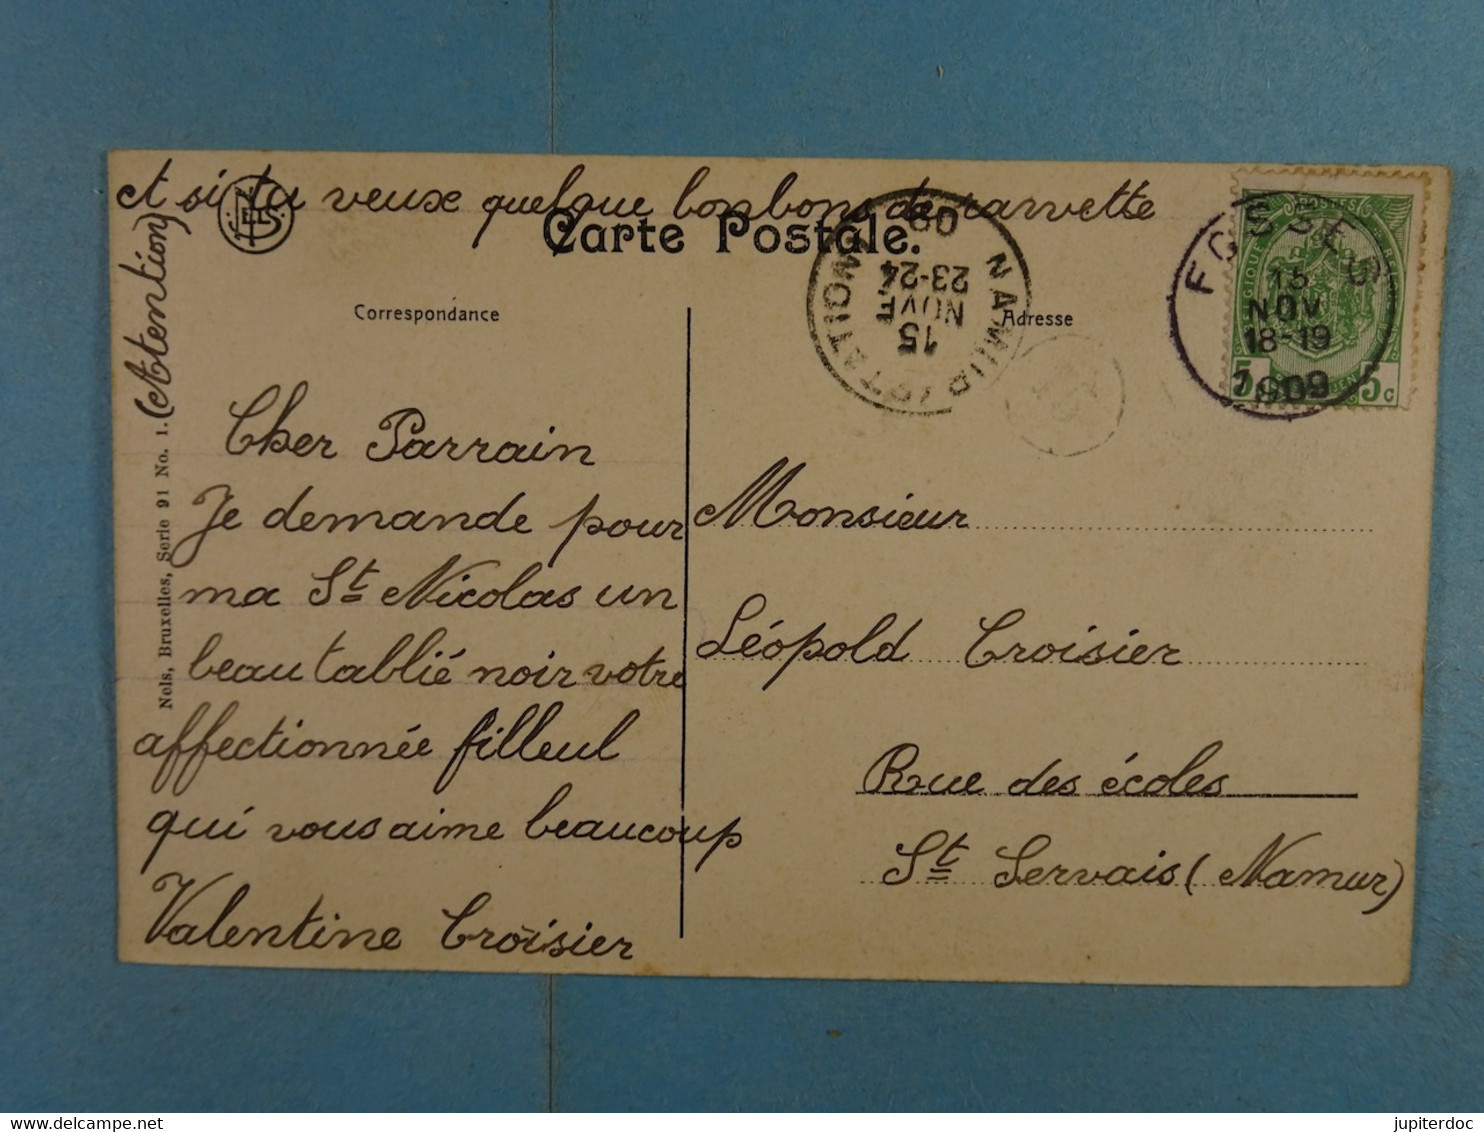 et si tu veux quelque bonbons de
NELS
Carte Postale.
(Atention)
Nels, Bruxelles, Serie 91 No. 1.
Correspondance
Adresse
NAMUR (STATION)
15
NOVE
23-24
09
FOSSES
15
NOV
18-19
1909
5 5c
Cher Parrain
Je demande pour
ma St Nicolas un
beau tablié noir votre
affectionnée filleul
qui vous aime beaucoup
Valentine Croisier
Monsieur
Léopold Croisier
Rue des écoles
St Servais (Namur)
www.delcampe.net
jupiterdoc